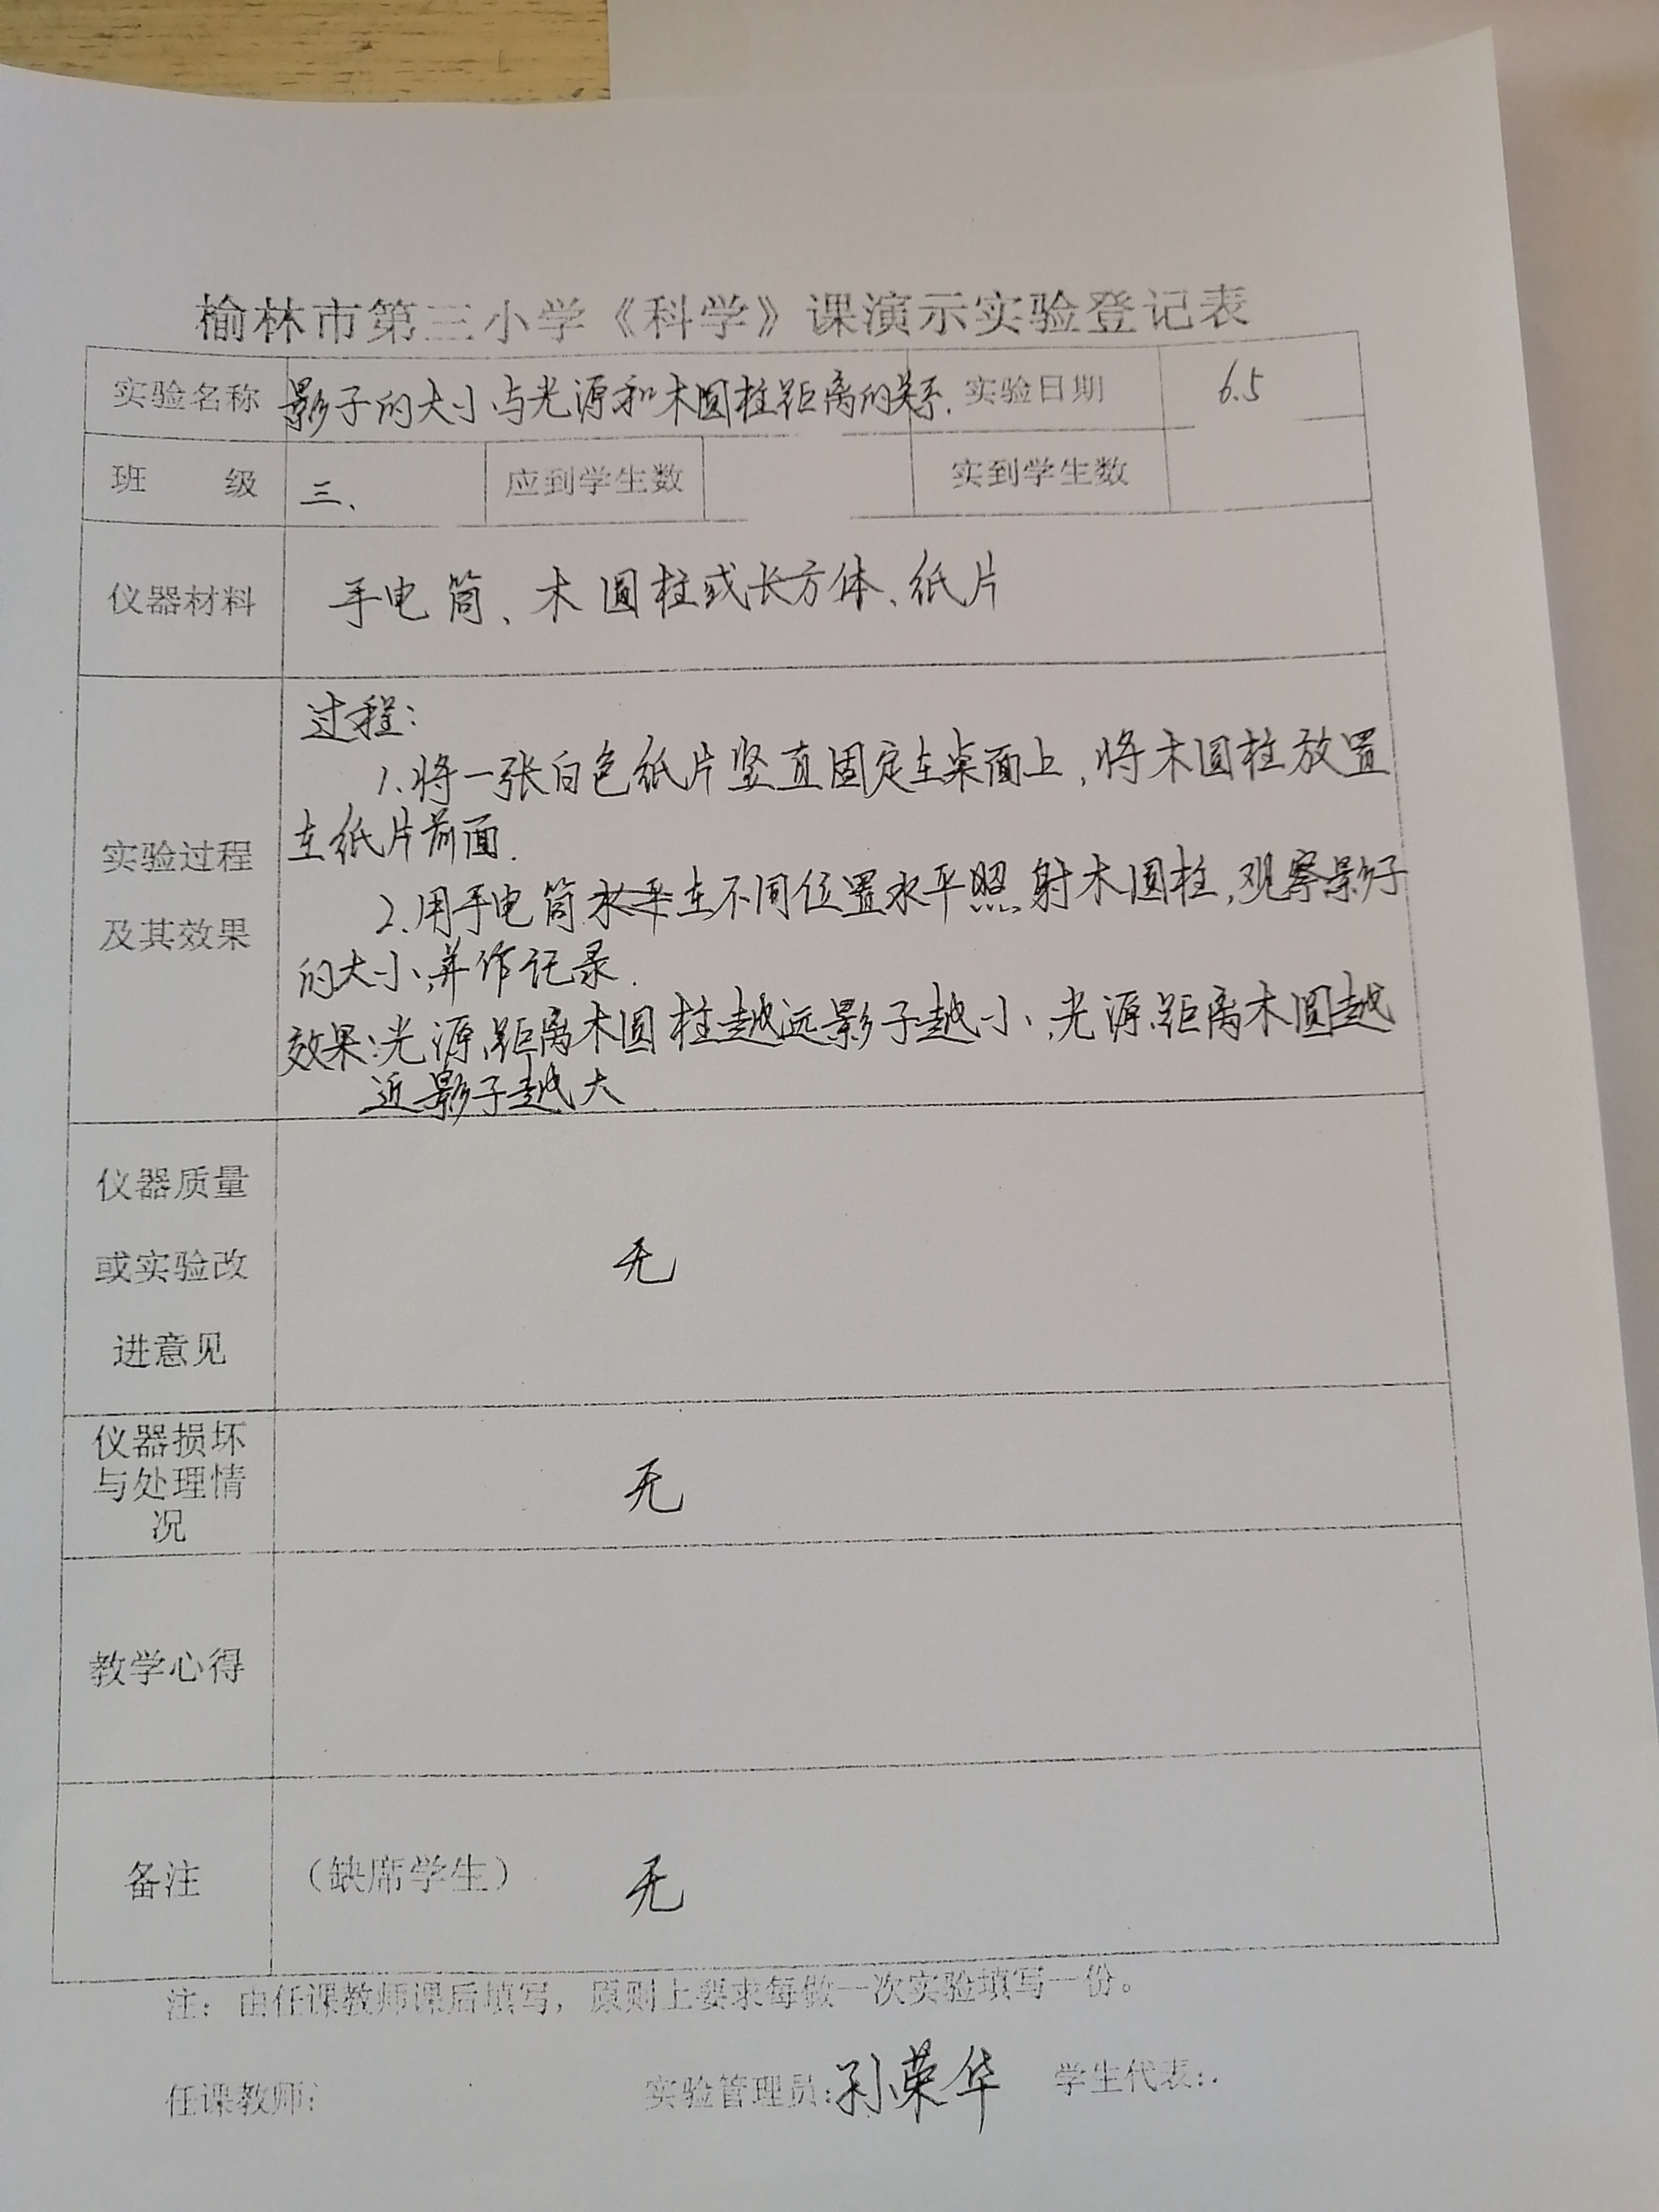 榆林市第三小学《科学》课演示实验登记表
实验名称 影子的大小与光源和木圆柱距离的关系. 实验日期 6.5
班 级 三、 应到学生数 实到学生数
仪器材料 手电筒、木圆柱或长方体、纸片
过程:
1.将一张白色纸片竖直固定在桌面上,将木圆柱放置
在纸片前面.
实验过程
2.用手电筒水平在不同位置水平照射木圆柱,观察影子
及其效果
的大小,并作记录.
效果:光源距离木圆柱越远影子越小,光源距离木圆越
近影子越大
仪器质量
或实验改
无
进意见
仪器损坏
与处理情
无
况
教学心得
备注 (缺席学生) 无
注:由任课教师课后填写,原则上要求每做一次实验填写一份。
任课教师: 实验管理员:孙荣华 学生代表: